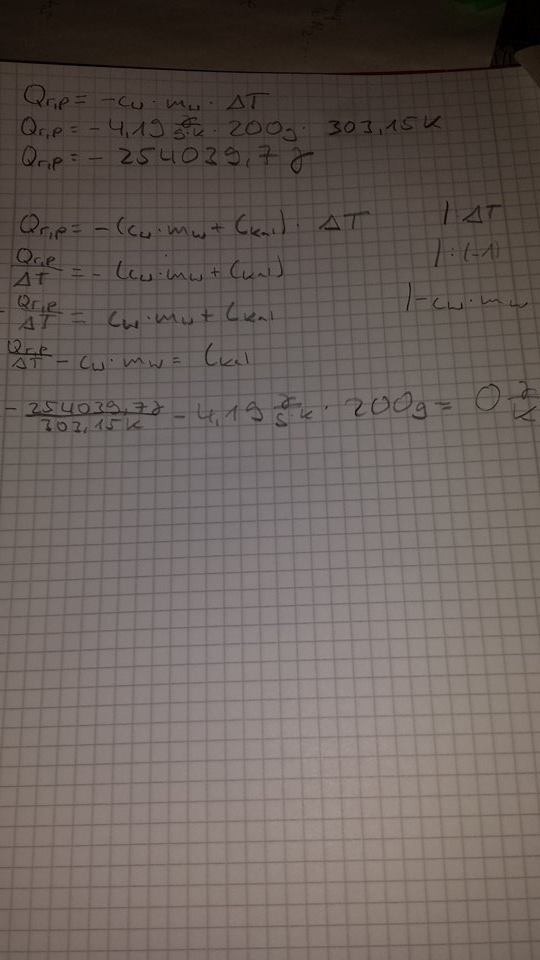 Qr,p = -cw · mw · ΔT
Qr,p = -4,19 J/g·K · 200g · 303,15K
Qr,p = - 254039,7 J
Qr,p = -(cw · mw + Ckal) · ΔT |:ΔT
Qr,p/ΔT = -(cw · mw + Ckal) |:(-1)
- Qr,p/ΔT = cw · mw + Ckal |-cw · mw
- Qr,p/ΔT - cw · mw = Ckal
- 254039,7J/303,15K - 4,19 J/g·K · 200g = 0 J/K